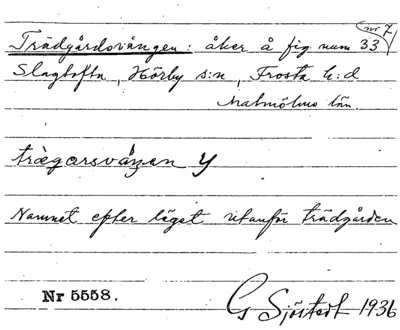 nr 7
Trädgårdsvången: åker å fig num 33
Slagtofta, Hörby s:n, Frosta h:d
Malmöhus län.
trägorsvåŋen y
Namnet efter läget utanför trädgården
Nr 5558.
G Sjöstedt 1936